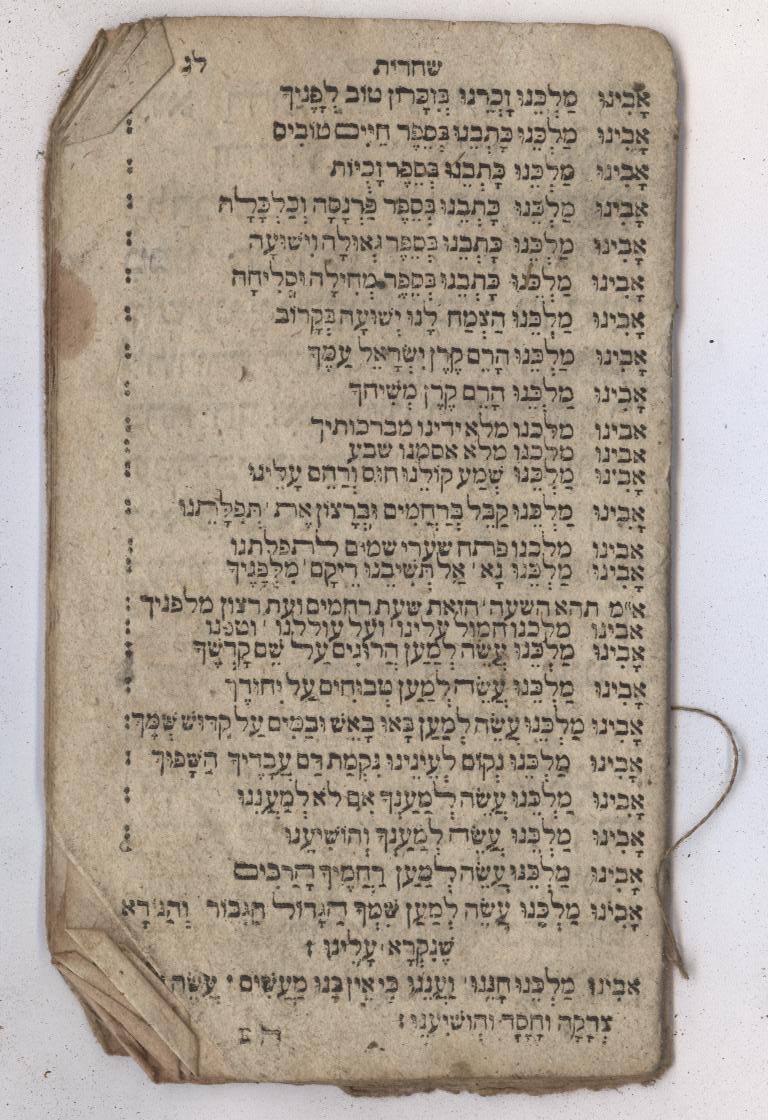 שחרית לג
אָבִינוּ מַלְכֵּנוּ זָכְרֵנוּ בְּזִכָּרוֹן טוֹב לְפָנֶיךָ
אָבִינוּ מַלְכֵּנוּ כָּתְבֵנוּ בְּסֵפֶר חַיִּים טוֹבִים :
אָבִינוּ מַלְכֵּנוּ כָּתְבֵנוּ בְּסֵפֶר זָכִיּוֹת :
אָבִינוּ מַלְכֵּנוּ כָּתְבֵנוּ בְּסֵפֶר פַּרְנָסָה וְכַלְכָּלָה :
אָבִינוּ מַלְכֵּנוּ כָּתְבֵנוּ בְּסֵפֶר גְאוּלָה וִישׁוּעָה :
אָבִינוּ מַלְכֵּנוּ כָּתְבֵנוּ בְּסֵפֶר מְחִילָה וּסְלִיחָה :
אָבִינוּ מַלְכֵּנוּ הַצְמַח לָנוּ יְשׁוּעָה בְּקָרוֹב :
אָבִינוּ מַלְכֵּנוּ הָרֵם קֶרֶן יִשְׂרָאֵל עַמֶּךָ :
אָבִינוּ מַלְכֵּנוּ הָרֵם קֶרֶן מְשִׁיחֶךָ :
אבינו מלכנו מלא ידינו מברכותיך :
אבינו מלכנו מלא אסמנו שבע :
אָבִינוּ מַלְכֵּנוּ שְׁמַע קוֹלֵנוּ חוּס וְרַחֵם עָלֵינוּ :
אָבִינוּ מַלְכֵּנוּ קַבֵּל בְּרַחֲמִים וּבְרָצוֹן אֶת תְּפִלָּתֵנוּ :
אבינו מלכנו פתח שערי שמים לתפלתנו :
אָבִינוּ מַלְכֵּנוּ נָא אַל תְּשִׁיבֵנוּ רֵיקָם מִלְּפָנֶיךָ :
א״מ תהא השעה הזאת שעת רחמים ועת רצון מלפניך :
אבינו מלכנו חמול עלינו ועל עוללנו וטפנו :
אָבִינוּ מַלְכֵּנוּ עֲשֵׂה לְמַעַן הֲרוּגִים עַל שֵׁם קָדְשֶׁךָ :
אָבִינוּ מַלְכֵּנוּ עֲשֵׂה לְמַעַן טְבוּחִים עַל יִחוּדֶךָ :
אָבִינוּ מַלְכֵּנוּ עֲשֵׂה לְמַעַן בָּאוּ בָאֵשׁ וּבַמַּיִם עַל קִדּוּשׁ שְׁמֶךָ :
אָבִינוּ מַלְכֵּנוּ נְקוֹם לְעֵינֵינוּ נִקְמַת דַּם עֲבָדֶיךָ הַשָּׁפוּךְ :
אָבִינוּ מַלְכֵּנוּ עֲשֵׂה לְמַעַנְךָ אִם לֹא לְמַעֲנֵנוּ :
אָבִינוּ מַלְכֵּנוּ עֲשֵׂה לְמַעַנְךָ וְהוֹשִׁיעֵנוּ :
אָבִינוּ מַלְכֵּנוּ עֲשֵׂה לְמַעַן רַחֲמֶיךָ הָרַבִּים
אָבִינוּ מַלְכֵּנוּ עֲשֵׂה לְמַעַן שִׁמְךָ הַגָּדוֹל הַגִּבּוֹר וְהַנּוֹרָא
שֶׁנִּקְרָא עָלֵינוּ :
אָבִינוּ מַלְכֵּנוּ חָנֵּנוּ וַעֲנֵנוּ כִּי אֵין בָּנוּ מַעֲשִׂים עֲשֵׂה
צְדָקָה וָחֶסֶד וְהוֹשִׁיעֵנוּ :